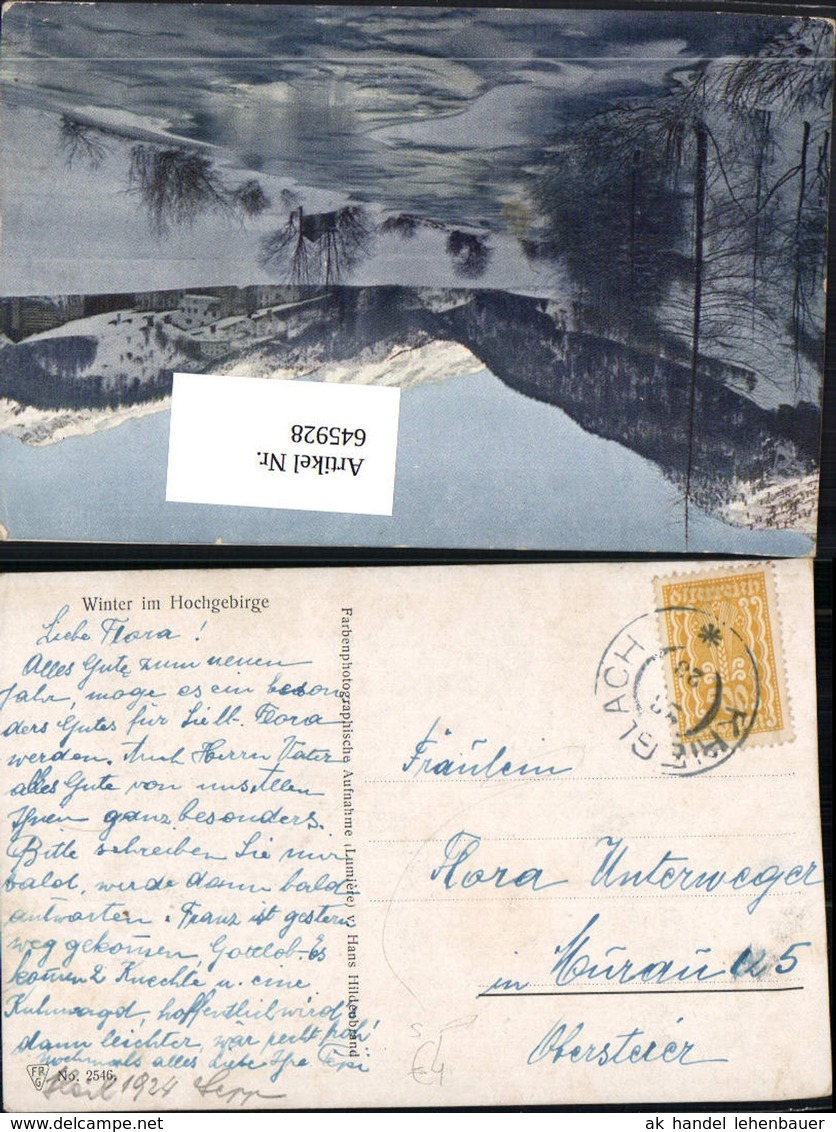 Artikel Nr.
645928
Winter im Hochgebirge
Liebe Flora!
Alles Gute zum neuen
Jahr, möge es ein beson
ders Gutes für Sie lb. Flora
werden. Auch Herrn Vater
alles Gute von uns allen
Ihnen ganz besonders.
Bitte schreiben Sie mir
bald, werde dann bald
antworten. Franz ist gestern
weg gekomen, Gottlob. Es
komen 2 Knechte u. eine
Kuhmagd, hoffentlich wird
dann leichter, wär recht froh!
Nochmals alles Liebe Ihre
1924 Sepp
FR
G
No. 2546.
Farbenphotographische Aufnahme (Lumière) v. Hans Hildenbrand
KRIEGLACH
23
Fräulein
Flora Unterweger
in Murau 125
Obersteier
ak handel lehenbauer